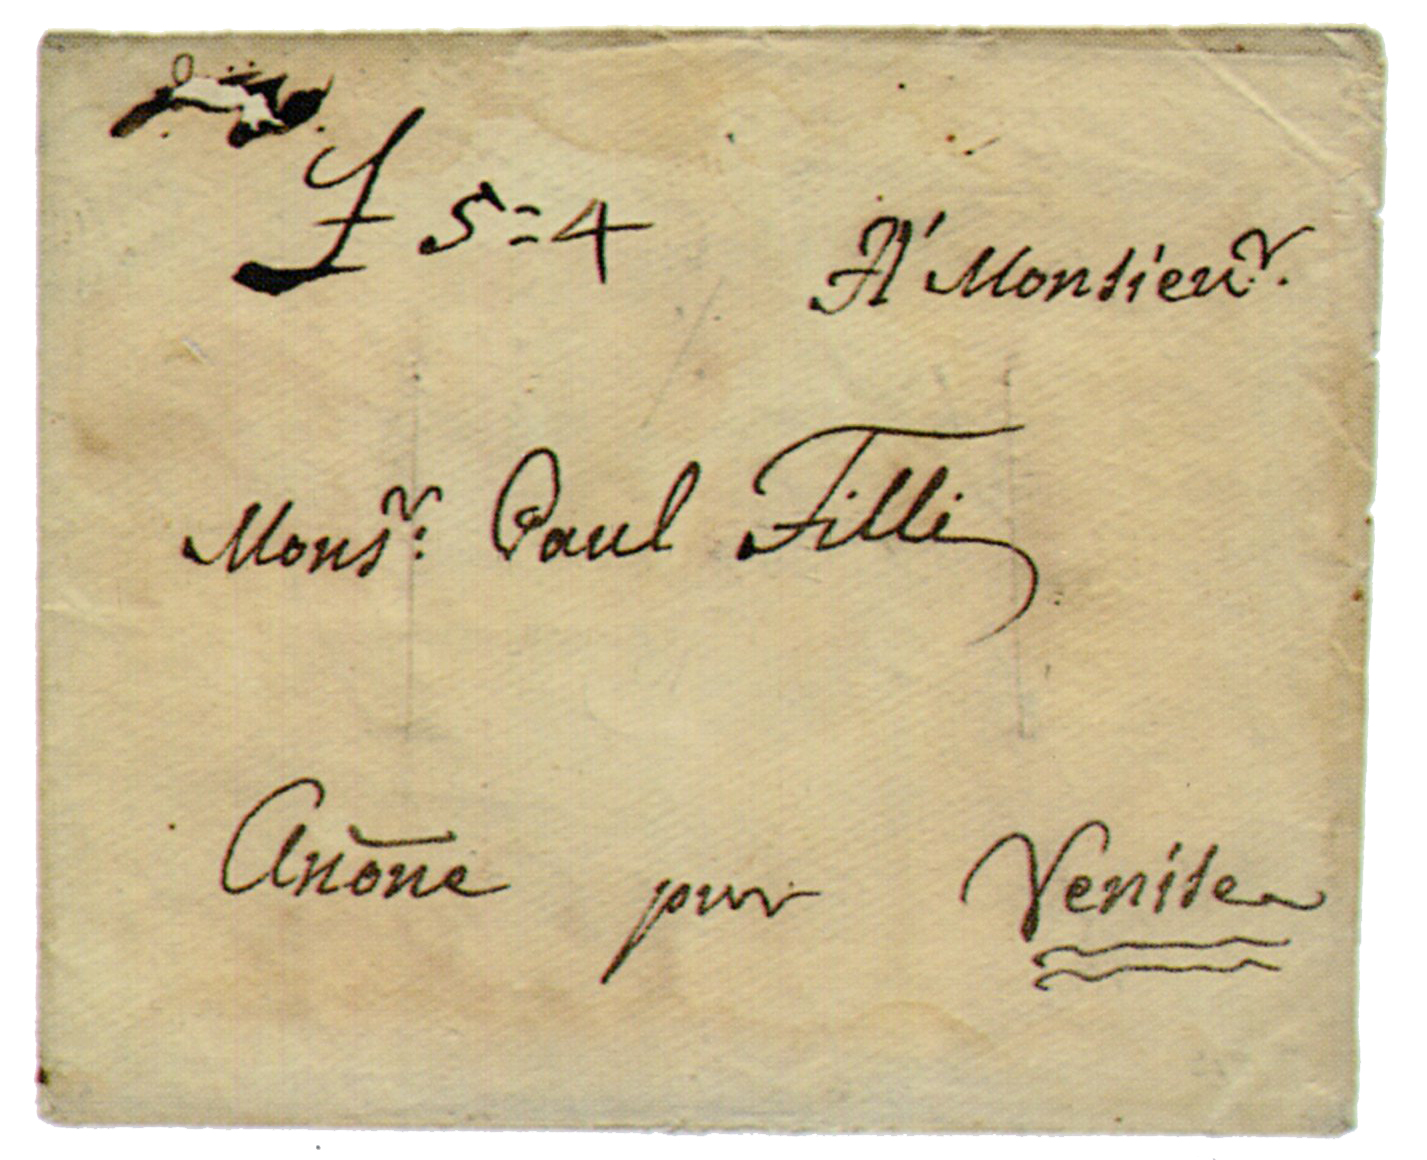 £ 5=4
A' Monsieur.
Monsr: Paul Filli
Anōne pur Venise